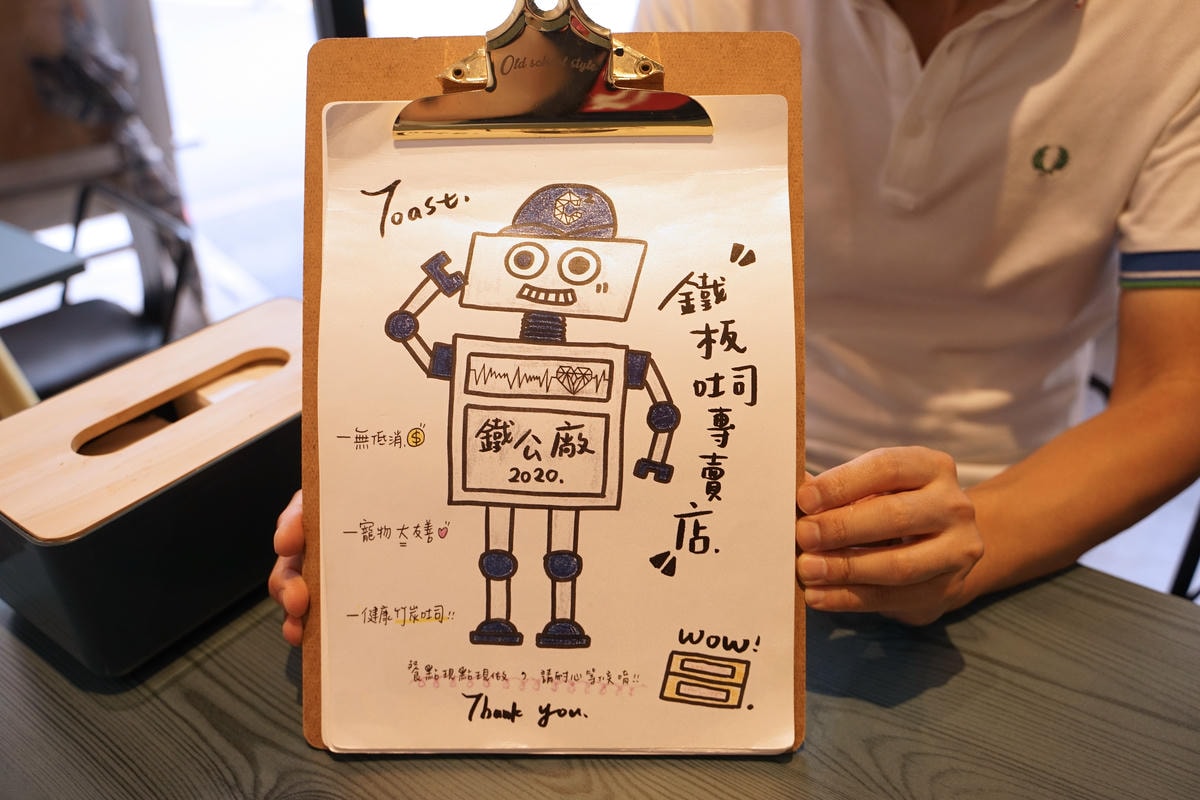 Old school style
Toast.
"鐵板吐司專賣店."
鐵公廠
2020.
一無低消.$
一寵物大友善
一健康竹炭吐司!!
WOW!
餐點現點現做,請耐心等候唷!!
Thank you.